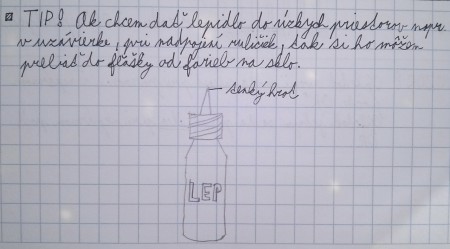 TIP! Ak chcem dať lepidlo do úzkych priestorov napr.
v uzávierke, pri nadpojení ruličiek, tak si ho môžem
preliať do flašky od farieb na sklo.
tenký hrot
LEP